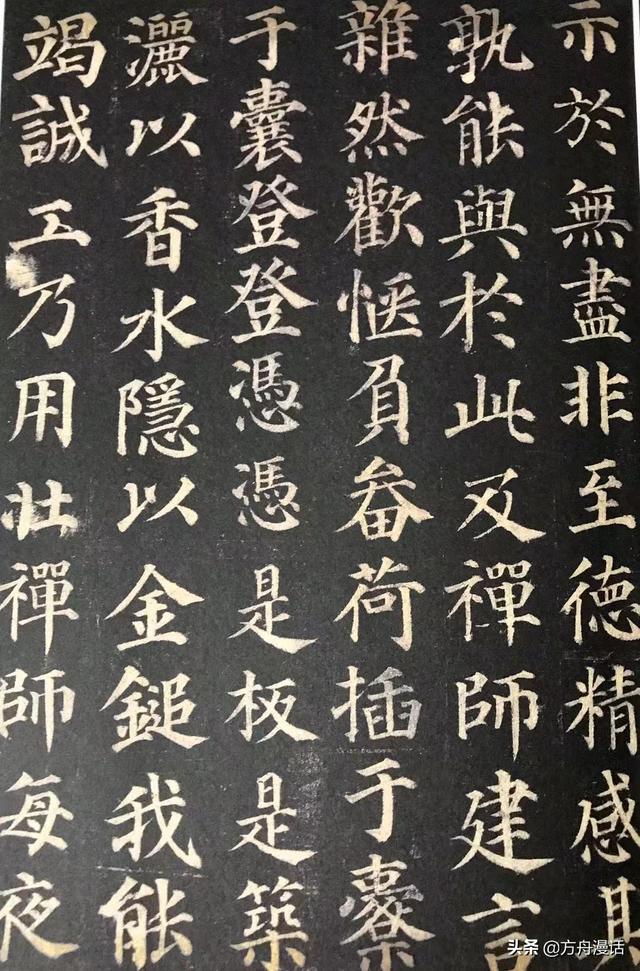 示於無盡非至德精感其
孰能與於此及禪師建言
雜然歡愜負畚荷插于橐
于囊登登憑憑是板是築
灑以香水隱以金鎚我能
竭誠工乃用壯禪師每夜
头条 @方舟漫话